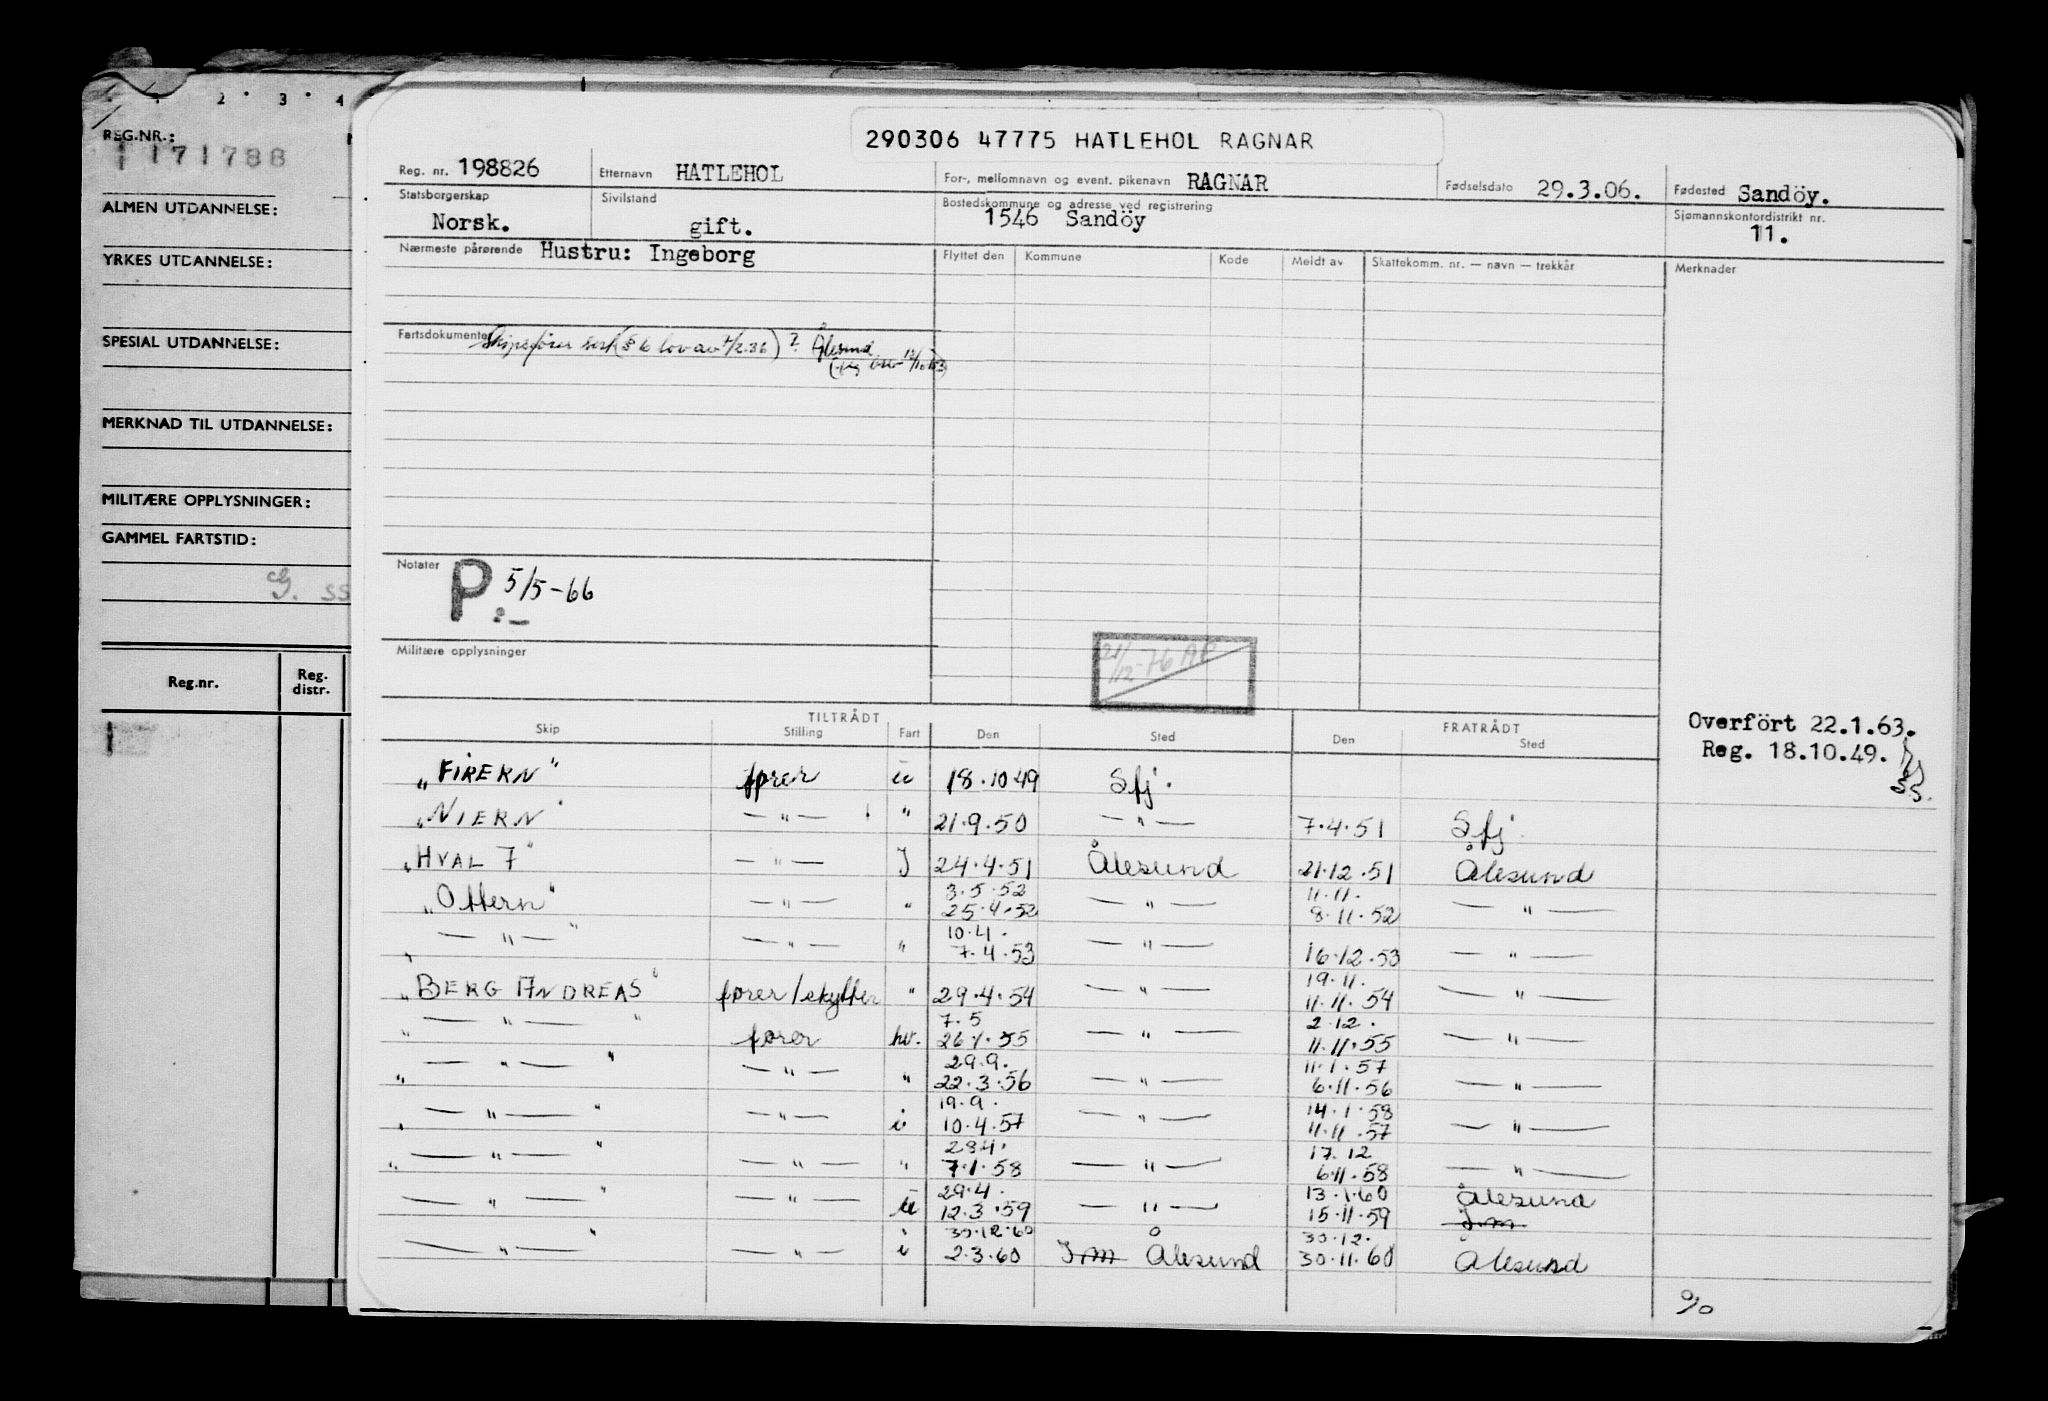 2 · 3 · 4
REG.NR.:
171788
ALMEN UTDANNELSE:
YRKES UTDANNELSE:
SPESIAL UTDANNELSE:
MERKNAD TIL UTDANNELSE:
MILITÆRE OPPLYSNINGER:
GAMMEL FARTSTID:
Reg.nr. Reg. distr.
290306 47775 HATLEHOL RAGNAR
Reg. nr. 198826 Etternavn HATLEHOL For-, mellomnavn og event. pikenavn RAGNAR Fødselsdato 29.3.06. Fødested Sandöy.
Statsborgerskap Norsk. Sivilstand gift. Bostedskommune og adresse ved registrering 1546 Sandöy Sjømannskontordistrikt nr. 11.
Nærmeste pårørende Hustru: Ingeborg Flyttet den Kommune Kode Meldt av Skattekomm. nr. — navn — trekkår Merknader
Fartsdokumenter Skipsfører sert (§ 6 lov av 7/2.36) ? Ålesund
Notater P:- 5/5-66
Militære opplysninger
21/12-76
Overfört 22.1.63.
Reg. 18.10.49.
TILTRÅDT FRATRÅDT
Skip Stilling Fart Den Sted Den Sted
"FIRERN" fører u 18.10 49 Sfj.
"NIERN" — " — " 21.9.50 — " — 7.4.51 Sfj.
"HVAL 7" — " — J 24.4.51 Ålesund 21.12.51 Ålesund
3.5.52 11.11.
"Ottern" — " — " 25.4.52 — " — 8.11.52 — " —
10.4.
" — " — " — " — " 7.4.53 — " — 16.12.53 — " —
19.11.
"BERG ANDREAS" fører/skytter " 29.4.54 — " — 11.11.54 — " —
7.5 2.12.
" — " — " fører hv. 26.1.55 — " — 11.11.55 — " —
29.9. 11.1.57
" — " — " — " — " 22.3.56 — " — 6.11.56 — " —
19.9. 14.1.58
" — " — " — " — i 10.4.57 — " — 11.11.57 — " —
28.4. 17.12
" — " — " — " — " 7.1.58 — " — 6.11.58 — " —
29.4. 13.1.60 Ålesund
— " — " — " — u 12.3.59 — " — 15.11.59 J.m
30.12.60 30.12.
— " — " — " — i 2.3.60 J.m Ålesund 30.11.60 Ålesund